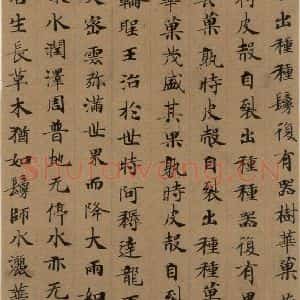 出種種鬘復有器樹華菓
時皮殼自裂出種種器復有
菓熟時皮殼自裂出種種
華菓茂盛其果熟時皮殼自裂
輪聖王治於世時阿耨達龍王
大密雲弥滿世界而降大雨如
水潤澤周普地无停水亦无
生長草木猶如鬘師水灑華
Shufawang.cn